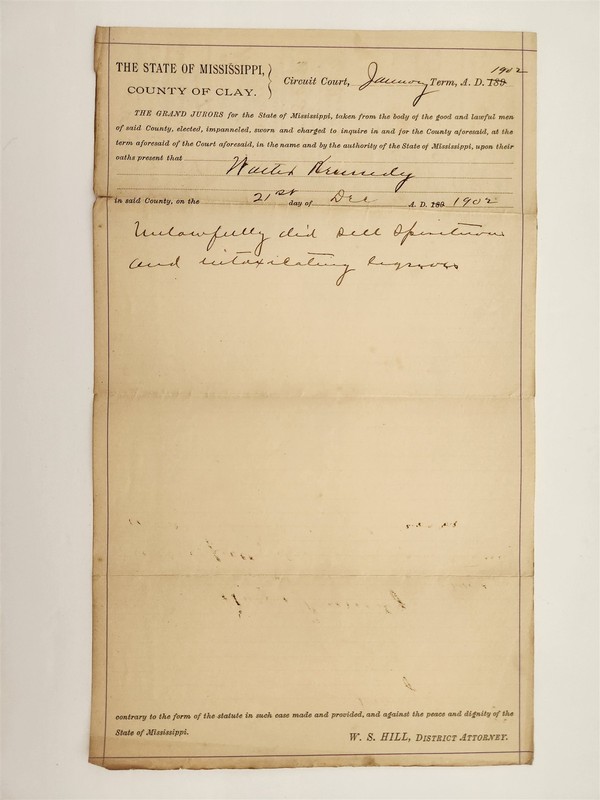 THE STATE OF MISSISSIPPI,
COUNTY OF CLAY.
Circuit Court, January Term, A. D. 189 1902
THE GRAND JURORS for the State of Mississippi, taken from the body of the good and lawful men
of said County, elected, impanneled, sworn and charged to inquire in and for the County aforesaid, at the
term aforesaid of the Court aforesaid, in the name and by the authority of the State of Mississippi, upon their
oaths present that Walter Kennedy
in said County, on the 21st day of Dec A. D. 189 1902
Unlawfully did sell Spirituous
and intoxicating liquors
contrary to the form of the statute in such case made and provided, and against the peace and dignity of the
State of Mississippi.
W. S. HILL, DISTRICT ATTORNEY.